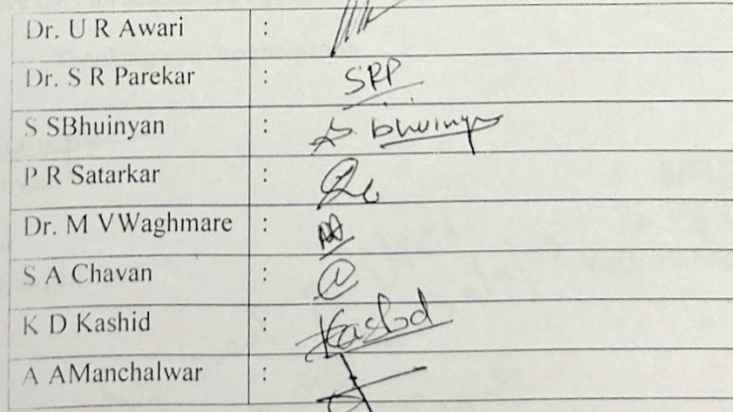 Dr. U R Awari :
Dr. S R Parekar : SRP
S SBhuinyan : S bhuinya
P R Satarkar :
Dr. M V Waghmare :
S A Chavan :
K D Kashid : Kashid
A AManchalwar :